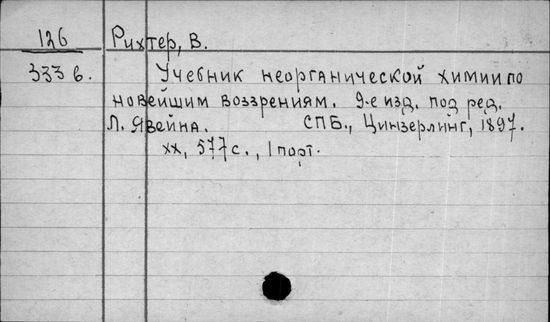 126 Рихтер, В.
333 б. Учебник неорганической химии по
новейшим воззрениям. 9-е изд. под ред.
Л. Явейна. СПБ., Цинзерлинг, 1897.
xx, 577 с., 1 порт.